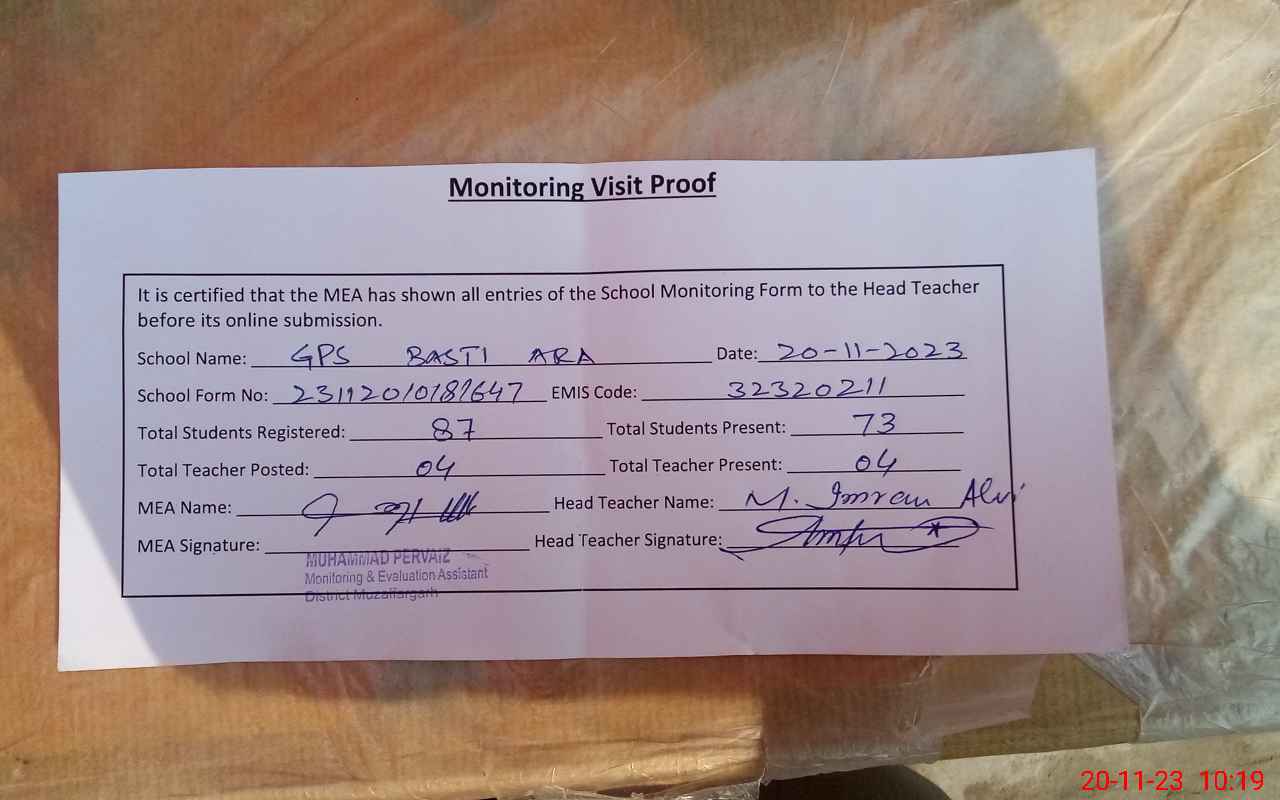 Monitoring Visit Proof
It is certified that the MEA has shown all entries of the School Monitoring Form to the Head Teacher
before its online submission.
School Name: GPS BASTI ARA Date: 20-11-2023
School Form No: EMIS Code: 32320211
Total Students Registered: 87 Total Students Present: 73
Total Teacher Posted: 04 Total Teacher Present: 04
MEA Name: Head Teacher Name: M. Imran Alvi
MEA Signature: Head Teacher Signature:
MUHAMMAD PERVAIZ
Monitoring & Evaluation Assistant
District Muzaffargarh
20-11-23 10:19